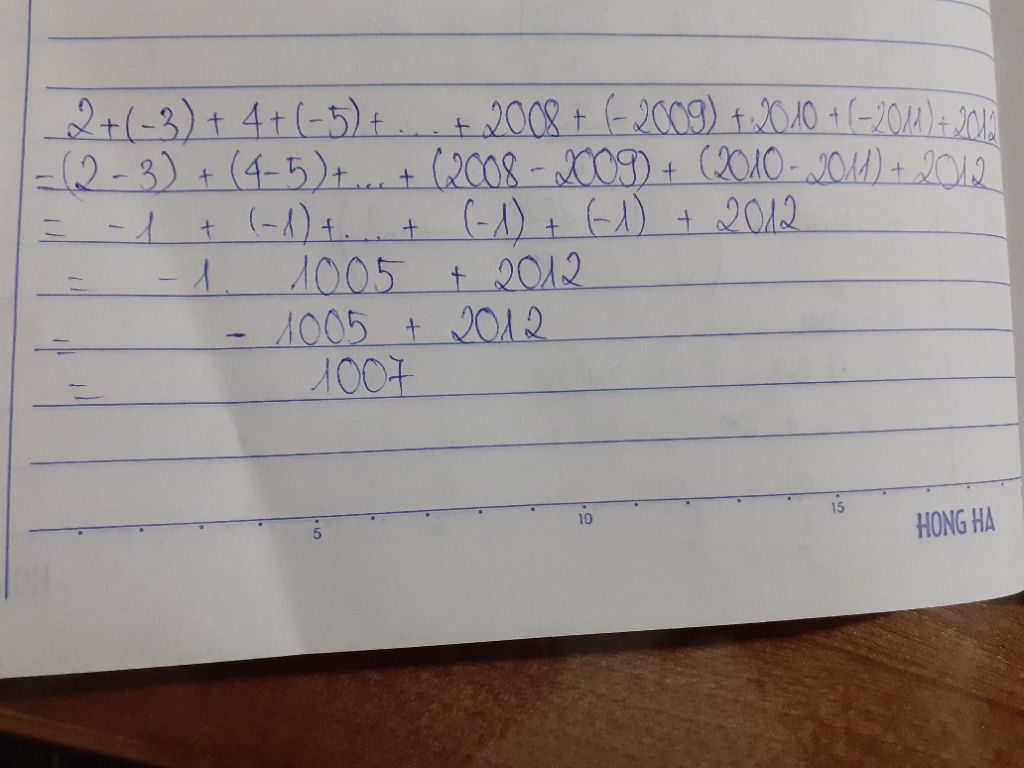 2+(-3) + 4+(-5)+ .... + 2008 + (-2009) + 2010 + (-2011) + 2012
=(2-3) + (4-5)+ ... + (2008 - 2009) + (2010 - 2011) + 2012
= -1 + (-1)+ .... + (-1) + (-1) + 2012
= -1. 1005 + 2012
= - 1005 + 2012
= 1007
5 10 15
HONG HA